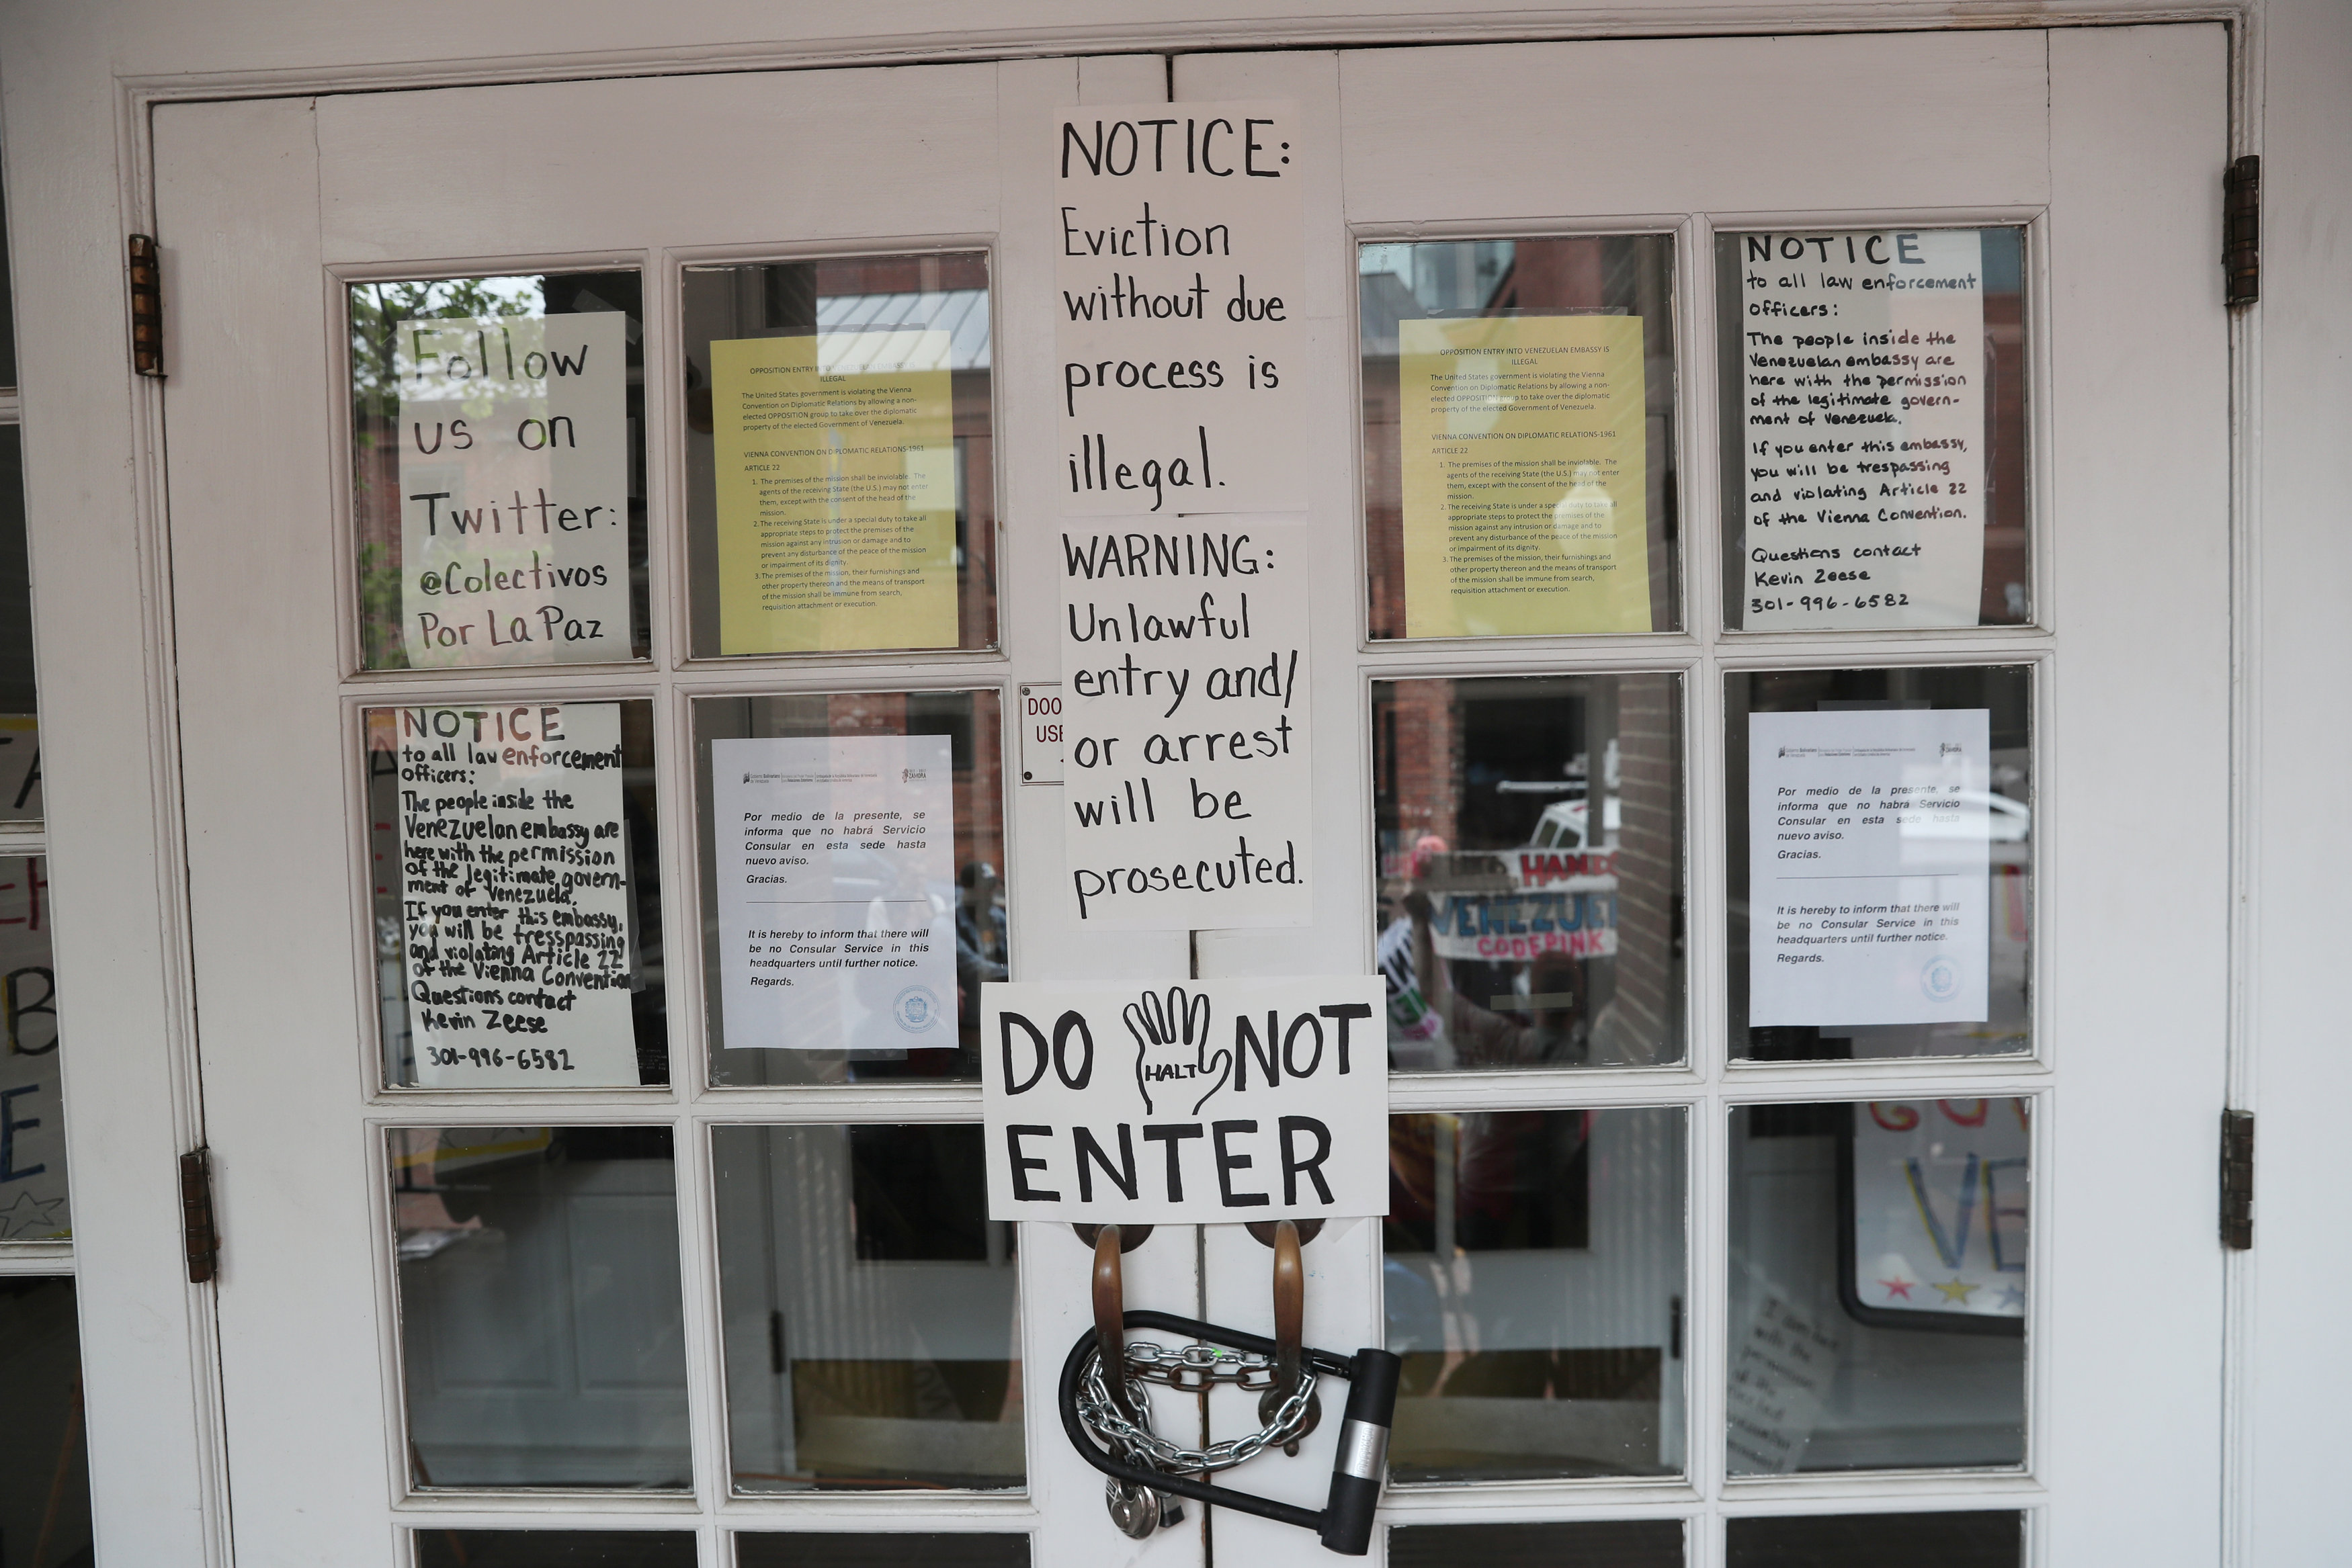 Follow
us on
Twitter:
@Colectivos
Por La Paz
OPPOSITION ENTRY INTO VENEZUELAN EMBASSY IS
ILLEGAL
The United States government is violating the Vienna
Convention on Diplomatic Relations by allowing a non-
elected OPPOSITION group to take over the diplomatic
property of the elected Government of Venezuela.
VIENNA CONVENTION ON DIPLOMATIC RELATIONS-1961
ARTICLE 22
1. The premises of the mission shall be inviolable. The
agents of the receiving State (the U.S.) may not enter
them, except with the consent of the head of the
mission.
2. The receiving State is under a special duty to take all
appropriate steps to protect the premises of the
mission against any intrusion or damage and to
prevent any disturbance of the peace of the mission
or impairment of its dignity.
3. The premises of the mission, their furnishings and
other property thereon and the means of transport
of the mission shall be immune from search,
requisition attachment or execution.
NOTICE:
Eviction
without due
process is
illegal.
WARNING:
Unlawful
entry and/
or arrest
will be
prosecuted.
OPPOSITION ENTRY INTO VENEZUELAN EMBASSY IS
ILLEGAL
The United States government is violating the Vienna
Convention on Diplomatic Relations by allowing a non-
elected OPPOSITION group to take over the diplomatic
property of the elected Government of Venezuela.
VIENNA CONVENTION ON DIPLOMATIC RELATIONS-1961
ARTICLE 22
1. The premises of the mission shall be inviolable. The
agents of the receiving State (the U.S.) may not enter
them, except with the consent of the head of the
mission.
2. The receiving State is under a special duty to take all
appropriate steps to protect the premises of the
mission against any intrusion or damage and to
prevent any disturbance of the peace of the mission
or impairment of its dignity.
3. The premises of the mission, their furnishings and
other property thereon and the means of transport
of the mission shall be immune from search,
requisition attachment or execution.
NOTICE
to all law enforcement
officers:
The people inside the
Venezuelan embassy are
here with the permission
of the legitimate govern-
ment of Venezuela.
If you enter this embassy,
you will be trespassing
and violating Article 22
of the Vienna Convention.
Questions contact
Kevin Zeese
301-996-6582
NOTICE
to all law enforcement
officers:
The people inside the
Venezuelan embassy are
here with the permission
of the legitimate govern-
ment of Venezuela.
If you enter this embassy,
you will be tresspassing
and violating Article 22
of the Vienna Convention
Questions contact
Kevin Zeese
301-996-6582
Por medio de la presente, se
informa que no habrá Servicio
Consular en esta sede hasta
nuevo aviso.
Gracias.
It is hereby to inform that there will
be no Consular Service in this
headquarters until further notice.
Regards.
DOO
USE
HANDS
VENEZUEL
CODEPINK
Por medio de la presente, se
informa que no habrá Servicio
Consular en esta sede hasta
nuevo aviso.
Gracias.
It is hereby to inform that there will
be no Consular Service in this
headquarters until further notice.
Regards.
DO HALT NOT
ENTER
B
E
VE